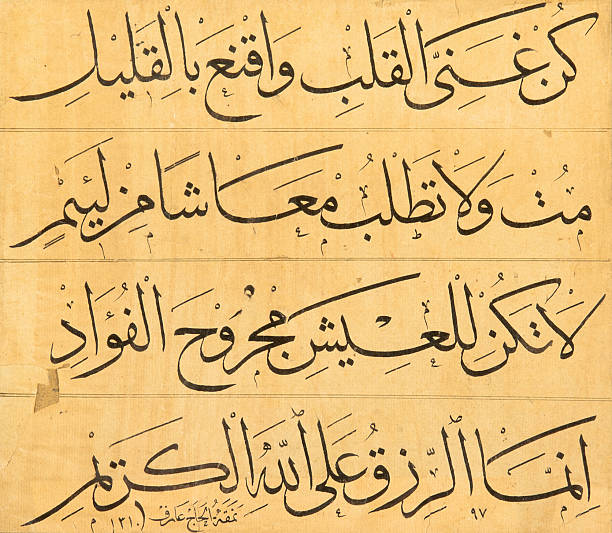 كُنْ غَنِىَّ الْقَلْبِ وَاقْنَعْ بَالْقَلِيلِ
مُتْ وَلَا تَطْلُبْ مَعَاشًا مِنْ لَئِيمٍ
لَا تَكُنْ لِلْعَيْشِ مَجْرُوحَ الْفُؤَادِ
اِنَّمَا الرِّزْقُ عَلَى اللهِ الْكَرِيمِ
نمقه الحاج عارف ١٣١٠
٩٧